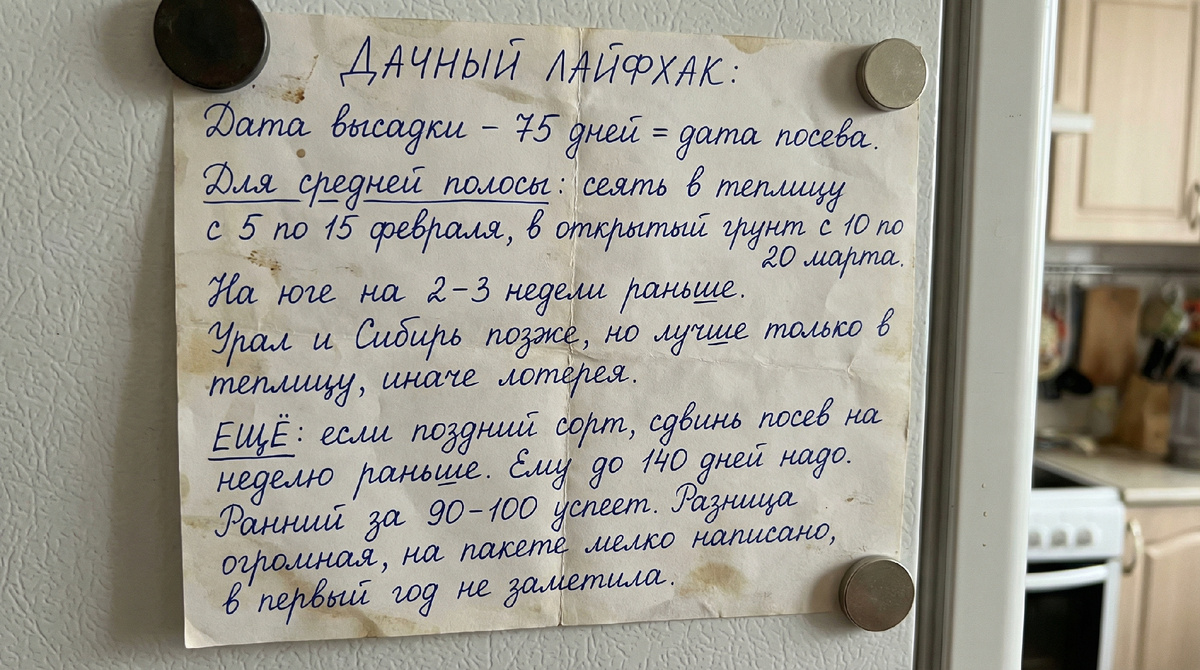 ДАЧНЫЙ ЛАЙФХАК:
Дата высадки – 75 дней = дата посева.
Для средней полосы: сеять в теплицу
с 5 по 15 февраля, в открытый грунт с 10 по
20 марта.
На юге на 2–3 недели раньше.
Урал и Сибирь позже, но лучше только в
теплицу, иначе лотерея.
ЕЩЁ: если поздний сорт, сдвинь посев на
неделю раньше. Ему до 140 дней надо.
Ранний за 90–100 успеет. Разница
огромная, на пакете мелко написано,
в первый год не заметила.